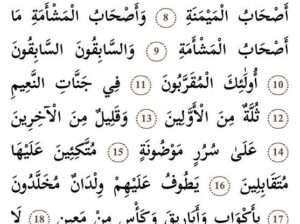 أَصْحَابُ الْمَيْمَنَةِ 8 وَأَصْحَابُ الْمَشْأَمَةِ مَا
أَصْحَابُ الْمَشْأَمَةِ 9 وَالسَّابِقُونَ السَّابِقُونَ
10 أُولَٰئِكَ الْمُقَرَّبُونَ 11 فِي جَنَّاتِ النَّعِيمِ
12 ثُلَّةٌ مِنَ الْأَوَّلِينَ 13 وَقَلِيلٌ مِنَ الْآخِرِينَ
14 عَلَىٰ سُرُرٍ مَوْضُونَةٍ 15 مُتَّكِئِينَ عَلَيْهَا
مُتَقَابِلِينَ 16 يَطُوفُ عَلَيْهِمْ وِلْدَانٌ مُخَلَّدُونَ
17 بِأَكْوَابٍ وَأَبَارِيقَ وَكَأْسٍ مِنْ مَعِينٍ 18 لَا